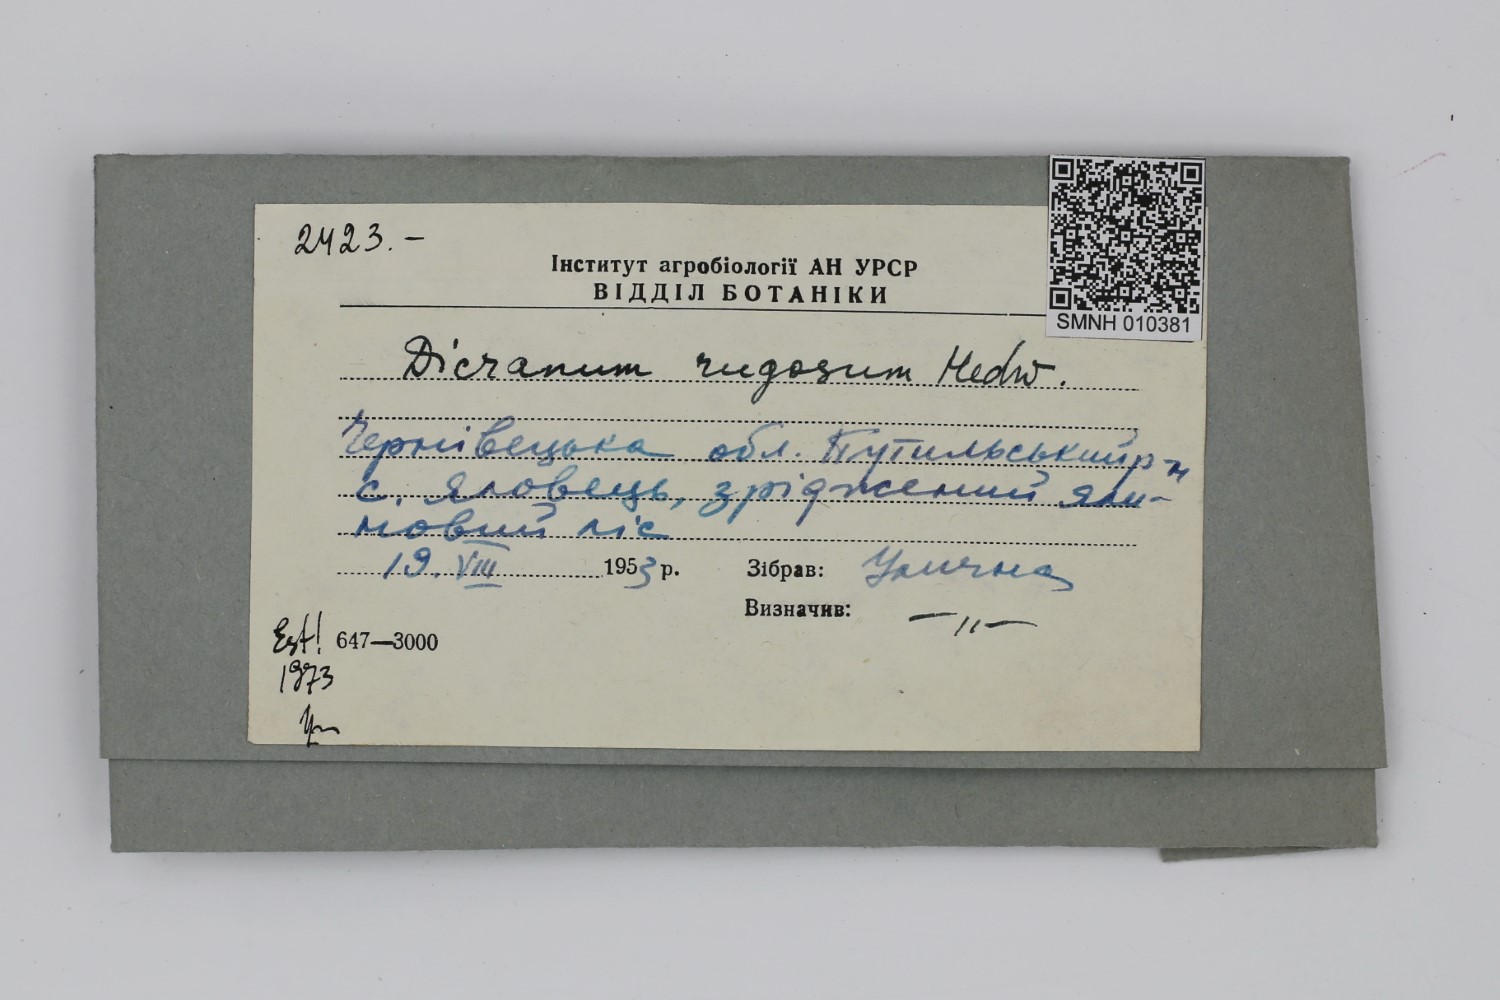 2423.-
Інститут агробіології АН УРСР
ВІДДІЛ БОТАНІКИ
SMNH 010381
Dicranum rugosum Hedw.
Чернівецька обл. Путильський р-н
с. Яловець, зріджений яли-
новий ліс
19. VIII 1953 р. Зібрав: Улична
Визначив: —〃—
Est! 647—3000
1973